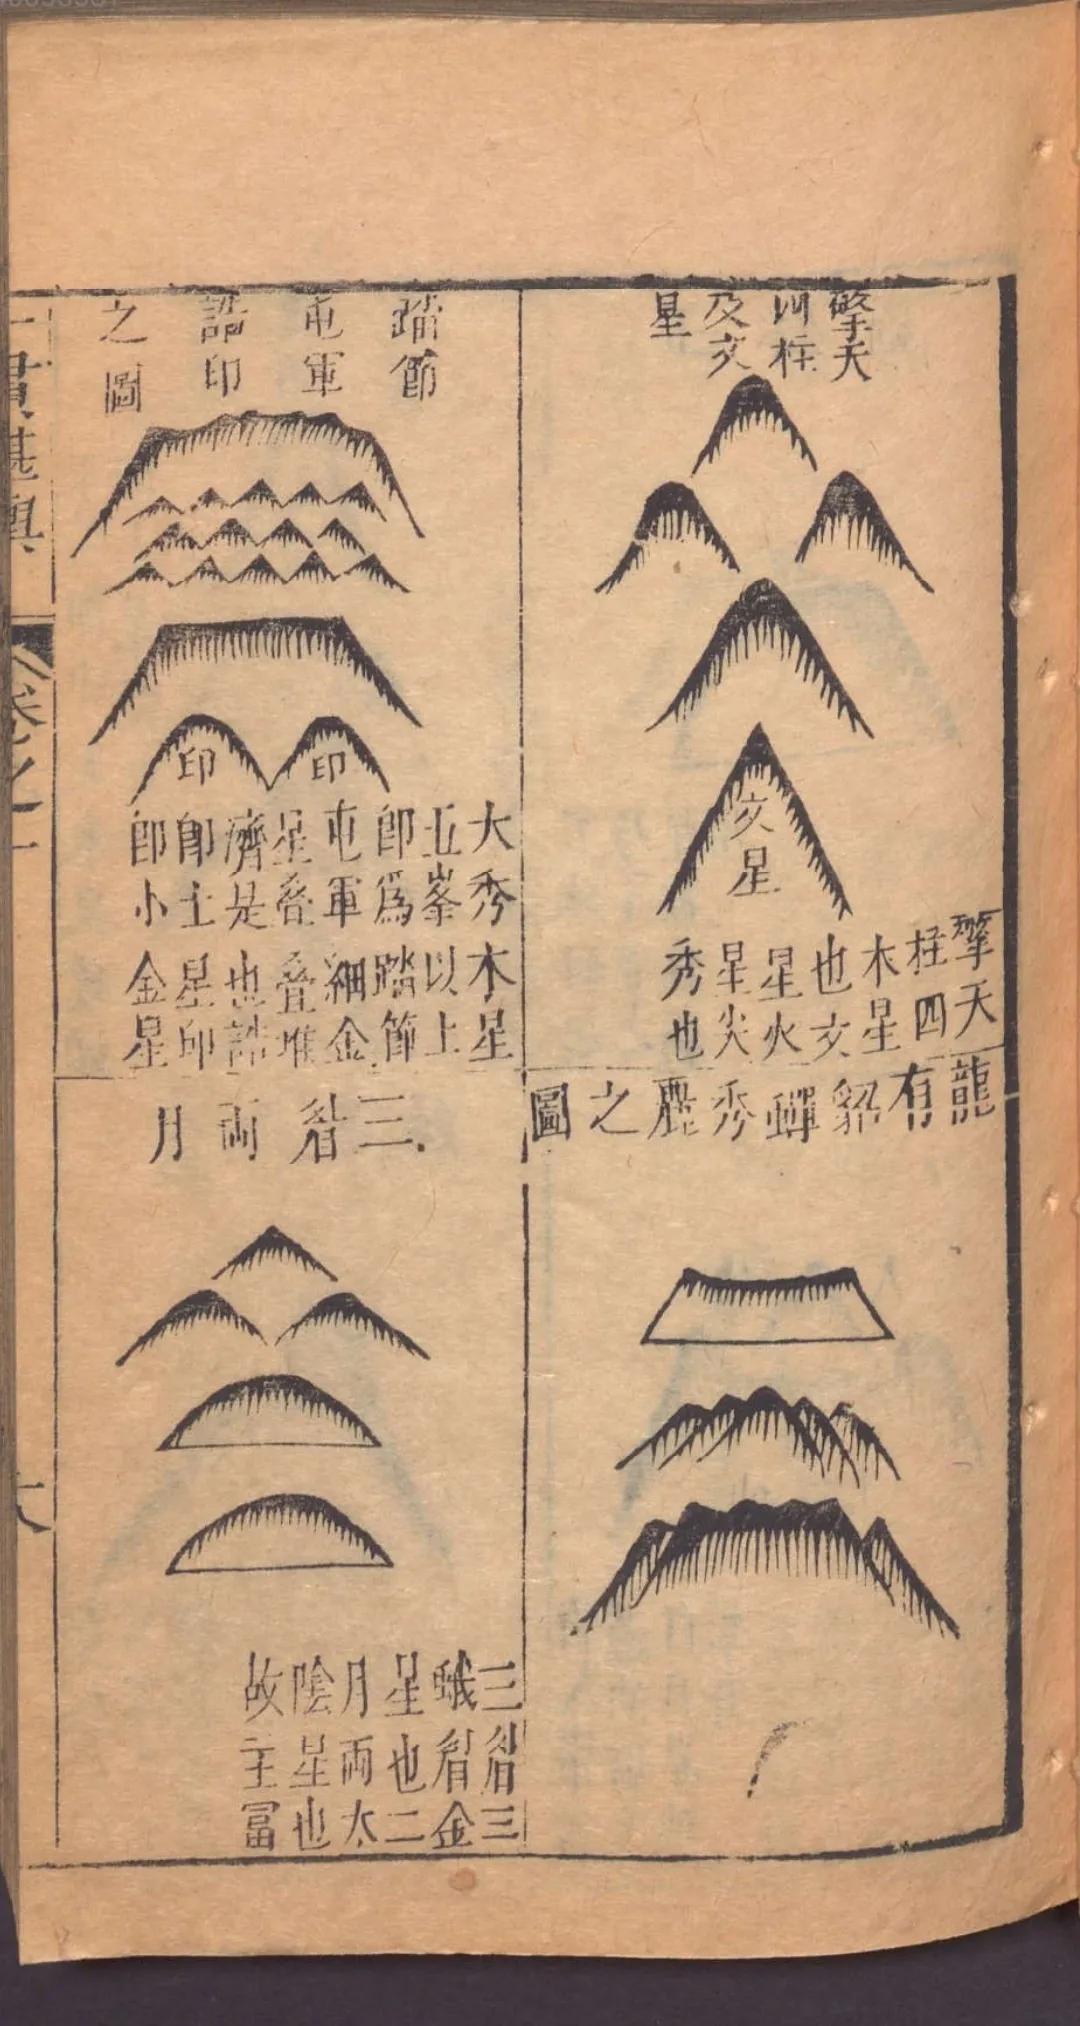 擎天
四柱
及文
星
文星
擎天
柱四
木星
也文
星火
星尖
秀也
踏節
屯軍
誥印
之圖
印
印
大秀木星
五峯以上
卽爲踏節
屯軍細金
星叠叠堆
濟是也誥
卽土星印
卽小金星
龍有貂蟬秀麗之圖
三台両月
三台三
蛾眉金
星也二
月両太
陰星也
故主冨
一貫堪輿
卷之